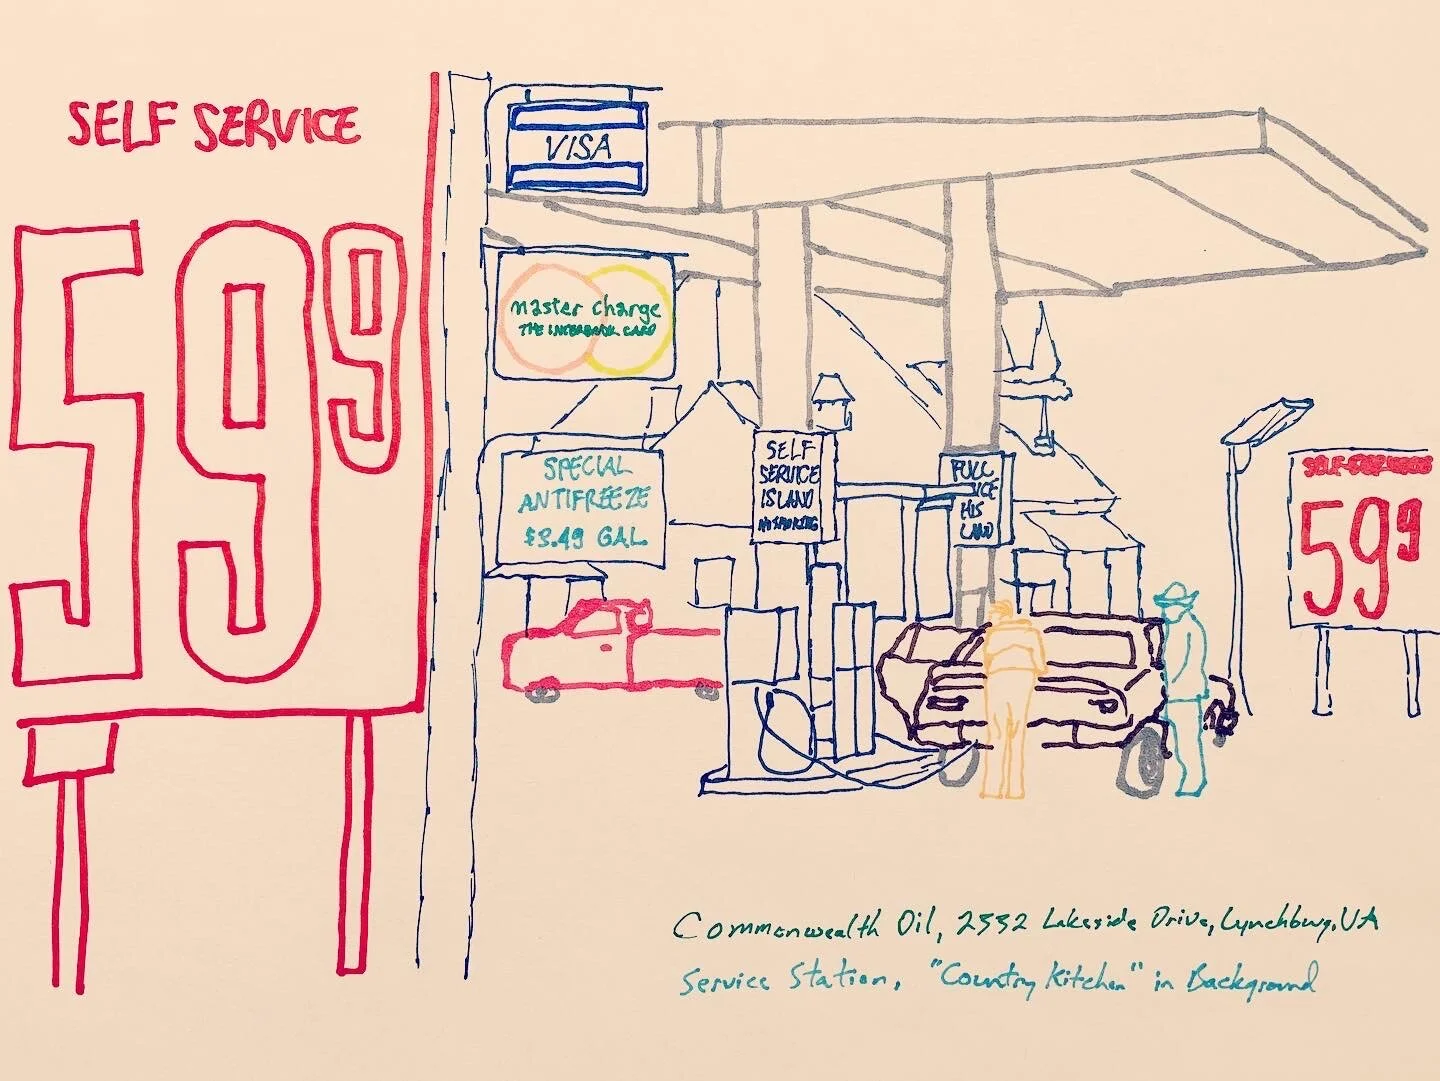 SELF SERVICE
59 9
VISA
master charge
THE INTERBANK CARD
SPECIAL
ANTIFREEZE
$3.49 GAL.
SELF
SERVICE
ISLAND
NO SMOKING
FULL
VICE
HIS
LAND
59 9
Commonwealth Oil, 2332 Lakeside Drive, Lynchburg, VA
Service Station, "Country Kitchen" in Background